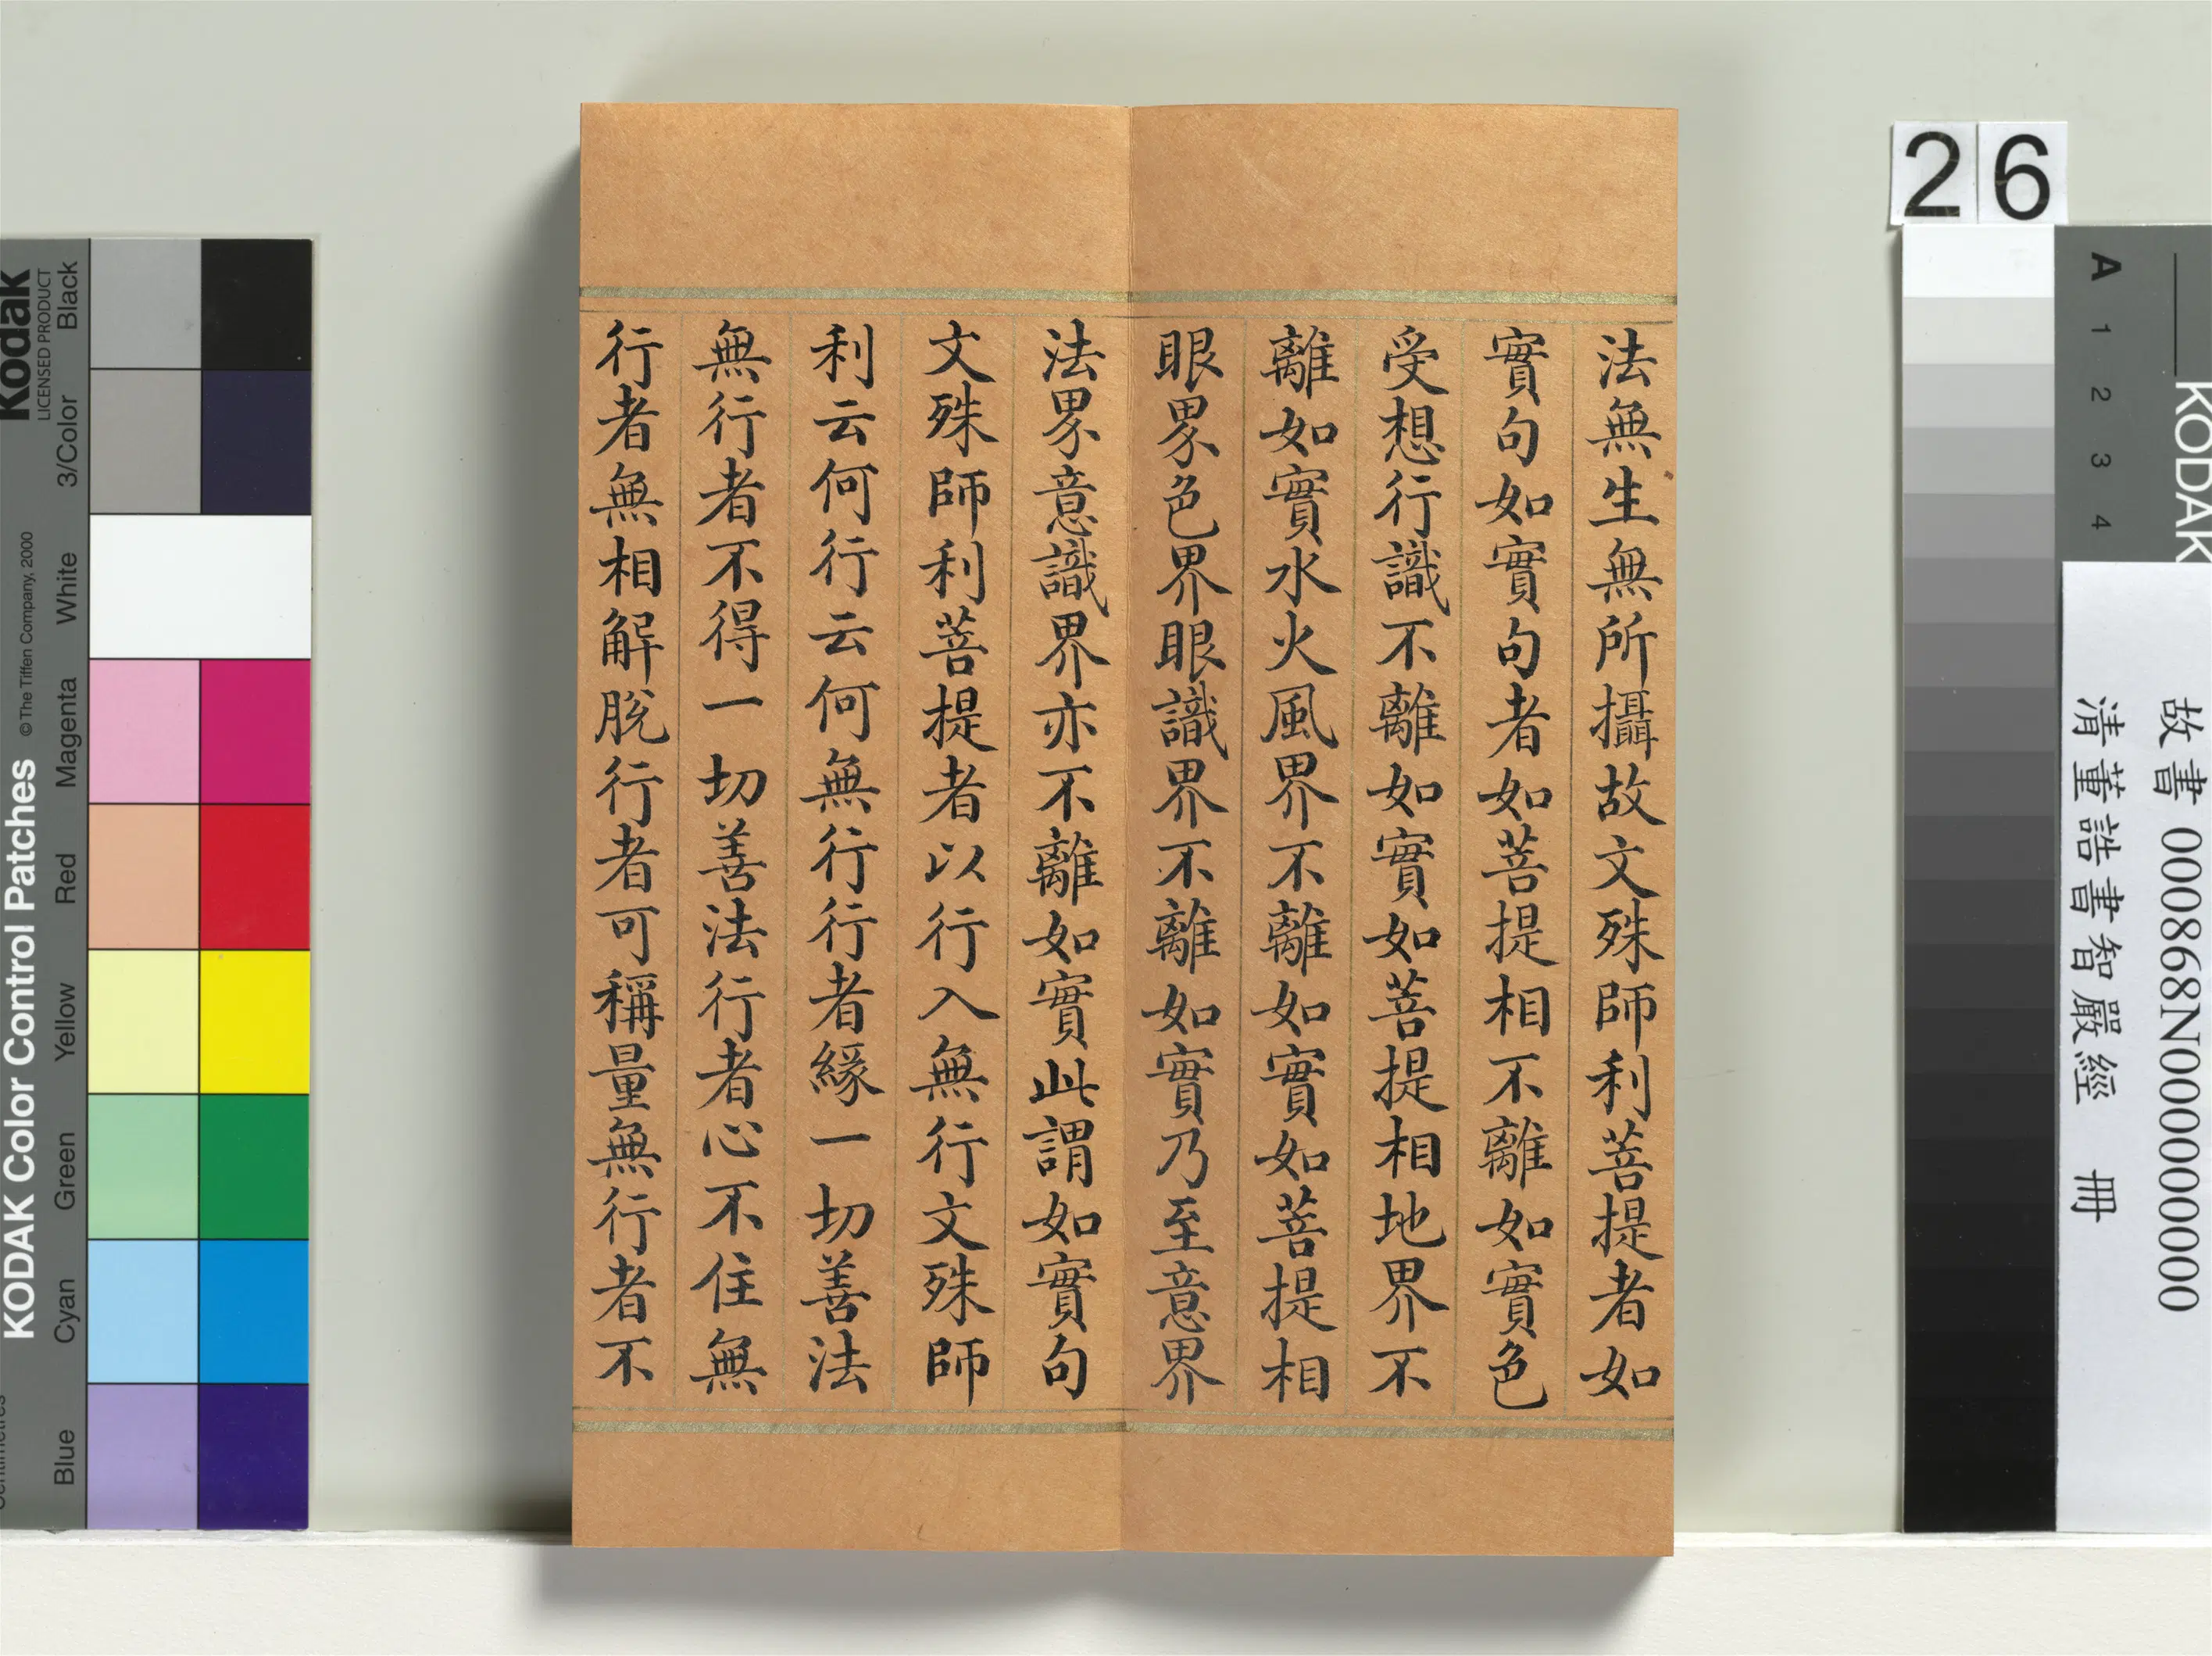 法無生無所攝故文殊師利菩提者如
實句如實句者如菩提相不離如實色
受想行識不離如實如菩提相地界不
離如實水火風界不離如實如菩提相
眼界色界眼識界不離如實乃至意界
法界意識界亦不離如實此謂如實句
文殊師利菩提者以行入無行文殊師
利云何行云何無行行者緣一切善法
無行者不得一切善法行者心不住無
行者無相解脫行者可稱量無行者不
26
故書 000868N000000000
清董誥書智嚴經 冊
KODAK
A 1 2 3 4
Kodak
LICENSED PRODUCT
KODAK Color Control Patches
©The Tiffen Company, 2000
Black
3/Color
White
Magenta
Red
Yellow
Green
Cyan
Blue